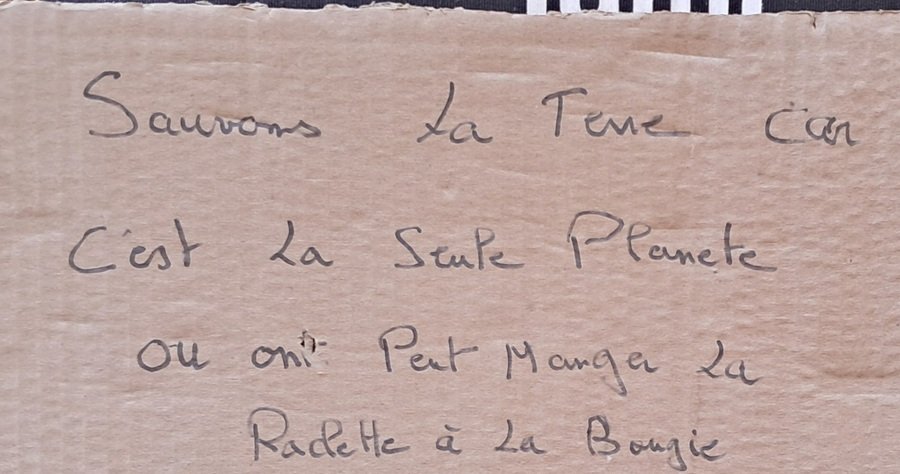 Sauvons La Terre Car
C'est La Seule Planete
Ou ont Peut Manger La
Raclette à La Bougie